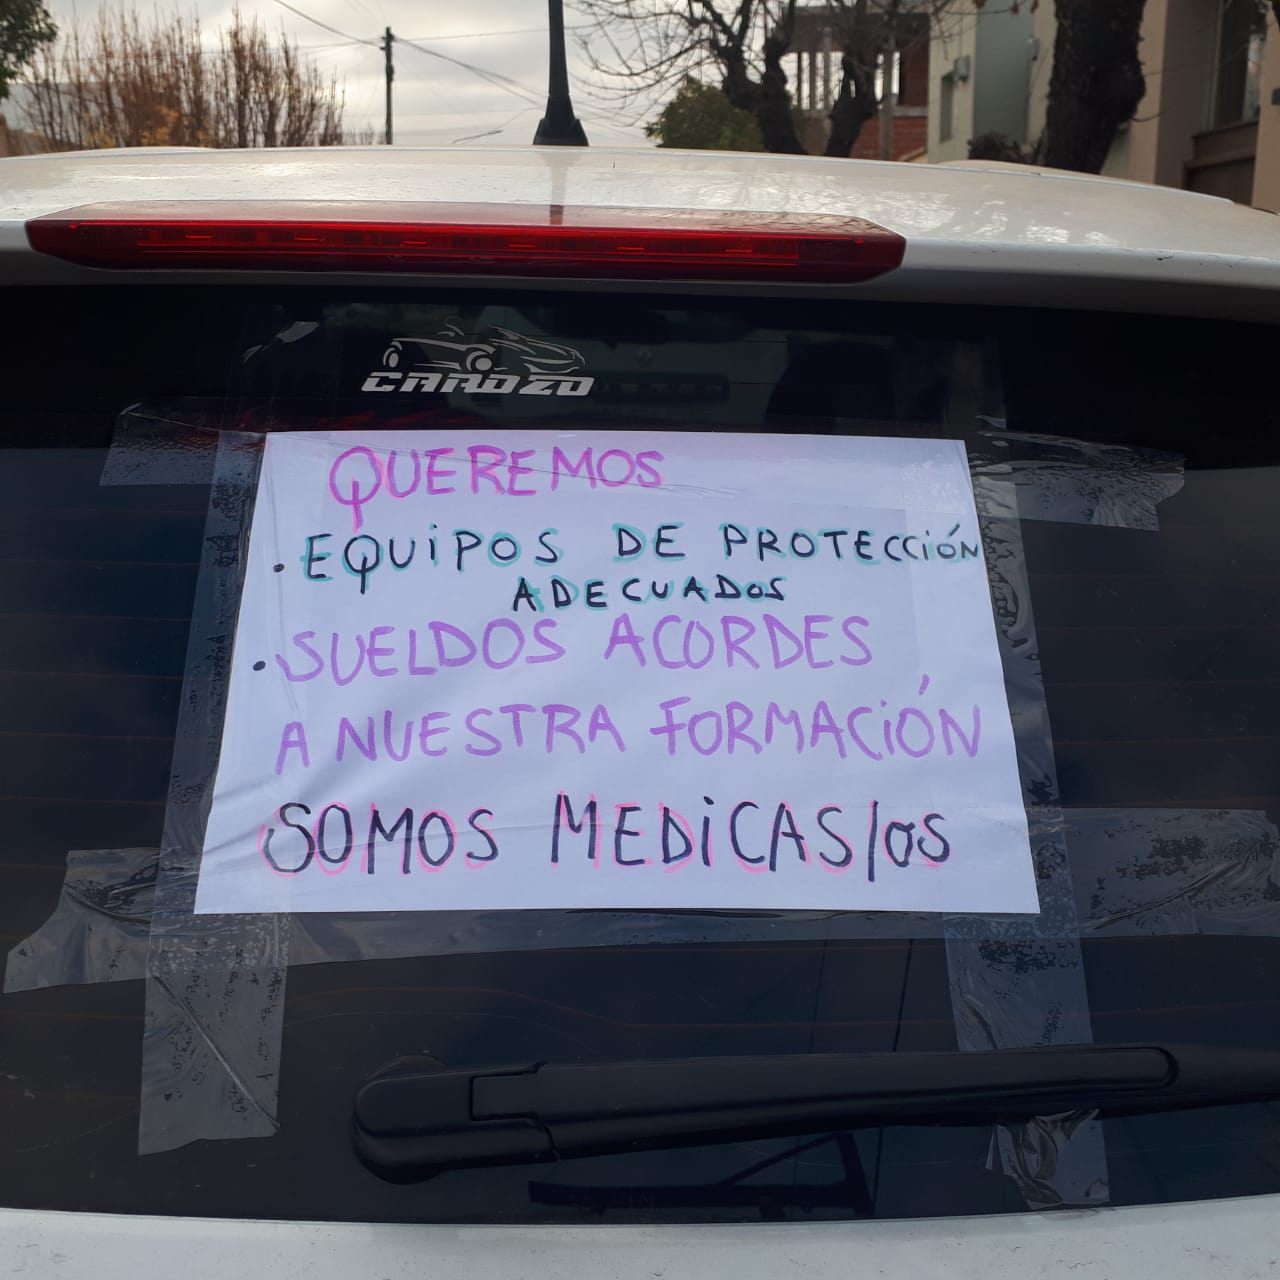 CARDOZO
QUEREMOS
. EQUiPOS DE PROTECCiÓN
ADECUADOS
. SUELDOS ACORDES
A NUESTRA FORMACiÓN
SOMOS MEDiCAS/os